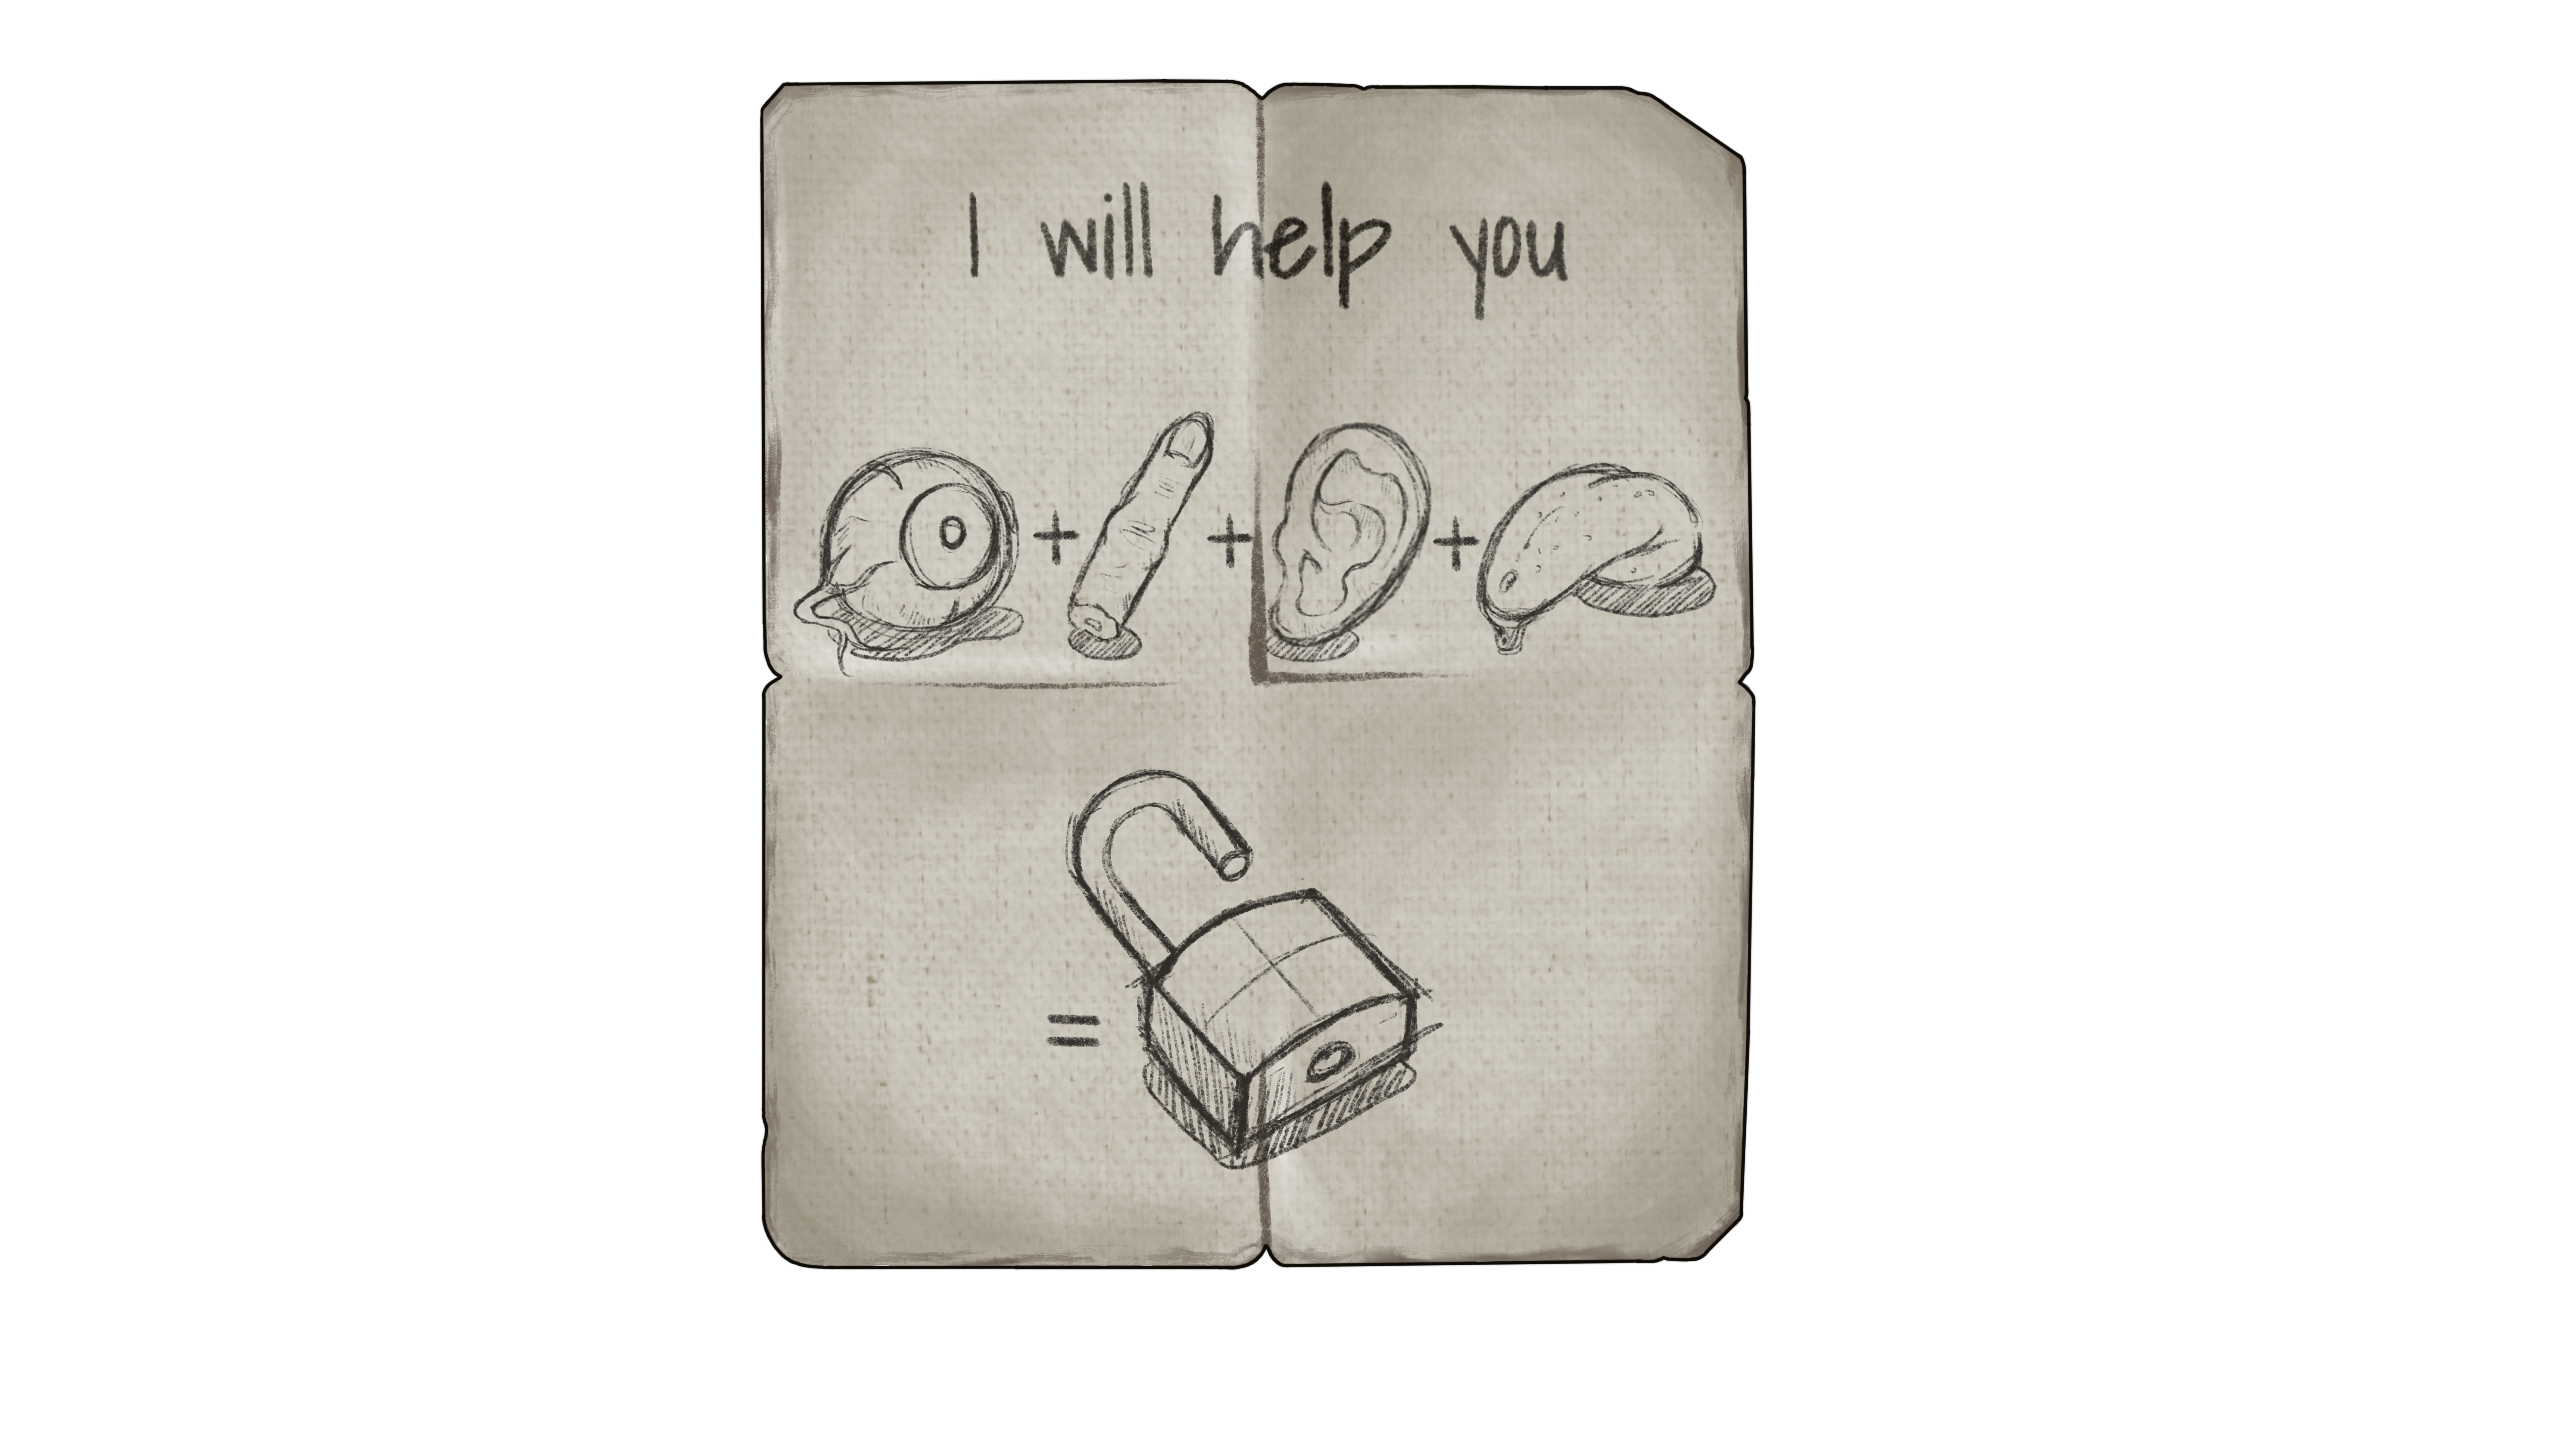 I will help you
+ + +
=